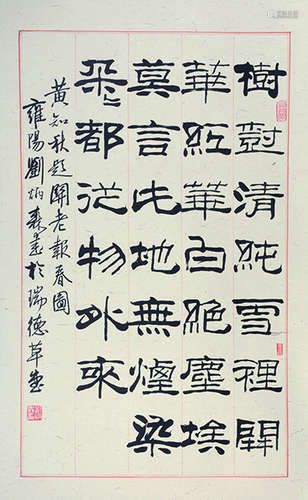 樹對清純雪裡開
華紅華白絕塵埃
莫言此地無煙染
朵〻都從物外來
黃知秋題關老報春圖
雍陽劉炳森書於瑞德草堂